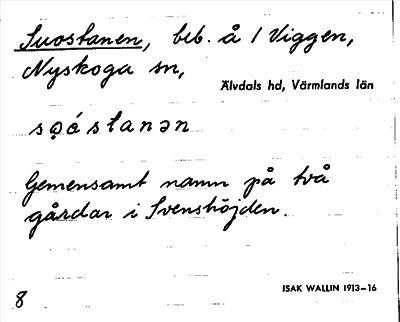 Suostanen, beb. å / Viggen,
Nyskoga sn,
Älvdals hd, Värmlands län
sọástanən
Gemensamt namn på två
gårdar i Svenshöjden.
ISAK WALLIN 1913–16
8